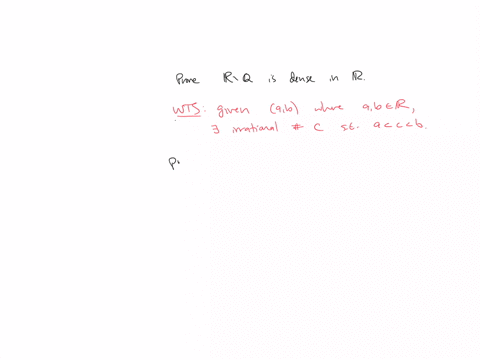 Prove ℝ∖ℚ is dense in ℝ.
WTS: given (a,b) where a,b ∈ ℝ,
∃ irrational # c s.t. a<c<b.
p.